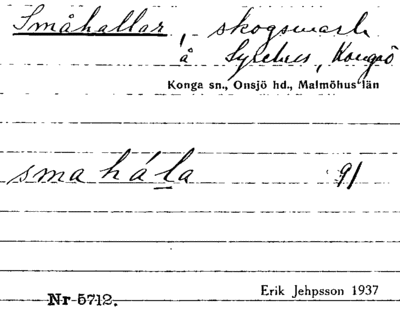 Småhallar, skogsmark
å
Konga sn., Onsjö hd., Malmöhus län
smahála 91
Nr 5712.
Erik Jehpsson 1937